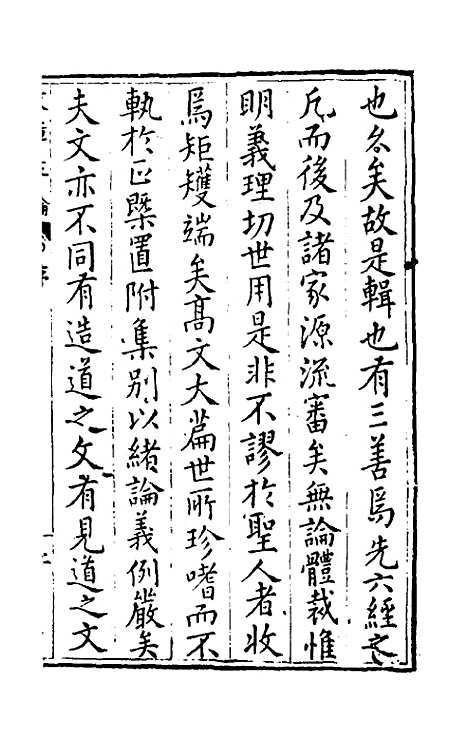 也久矣故是輯也有三善焉先六經之
凡而後及諸家源流審矣無論體裁惟
明義理切世用是非不謬於聖人者收
焉矩矱端矣高文大篇世所珍嗜而不
軌於正槩置附集别以緒論義例嚴矣
夫文亦不同有造道之文有見道之文